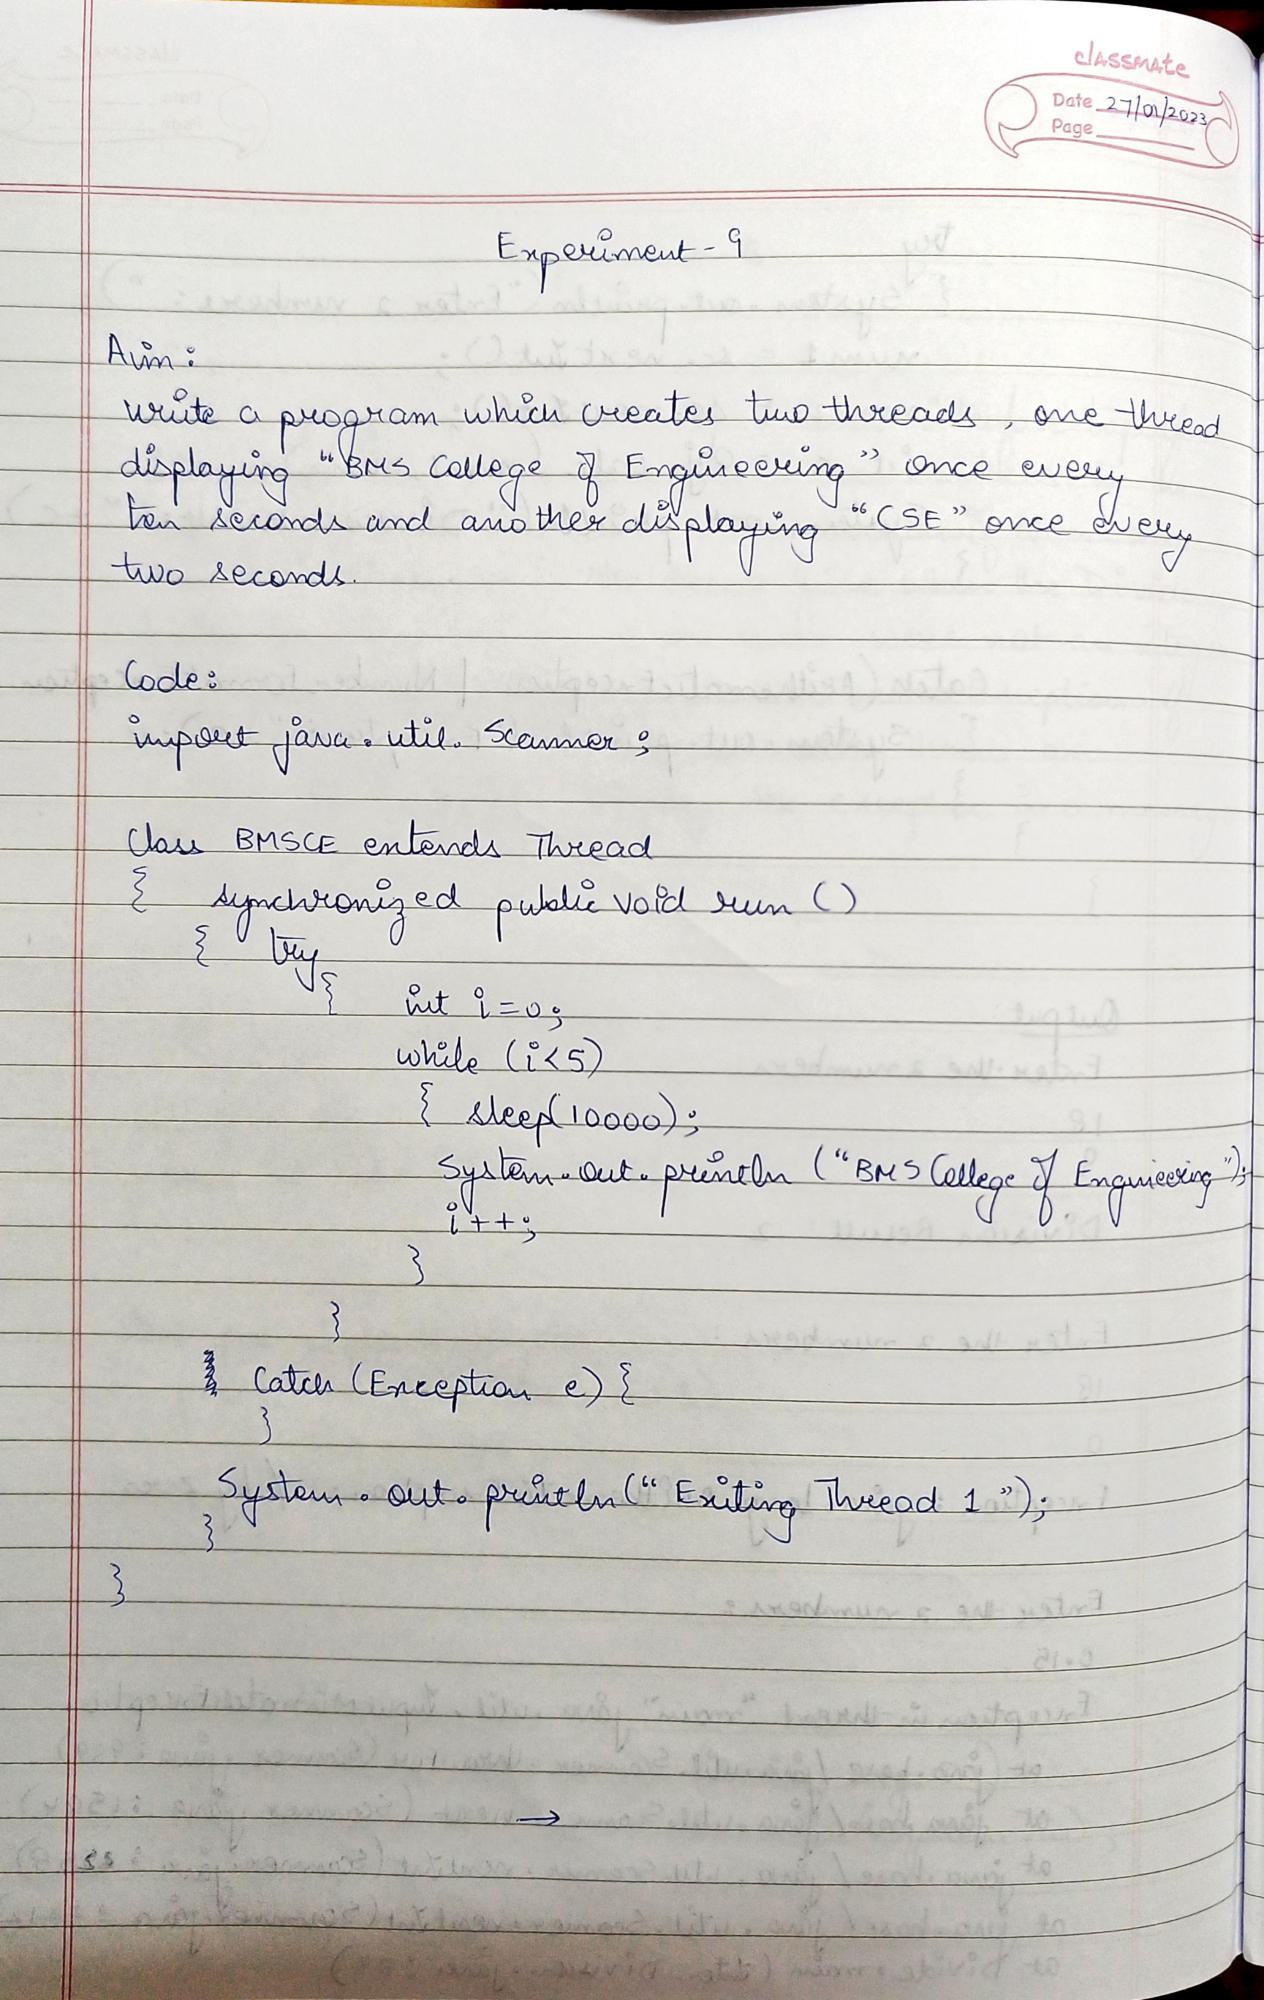 classmate
Date 27/01/2023
Page
Experiment - 9
Aim:
Write a program which creates two threads, one thread
displaying "BMS College of Engineering" once every
ten seconds and another displaying "CSE" once every
two seconds.
Code:
import java.util.Scanner;
Class BMSCE extends Thread
{ synchronized public void run ()
{ try
{ int i=0;
while (i<5)
{ sleep(10000);
System.out.println ("BMS College of Engineering");
i++;
}
}
Catch (Exception e) {
}
System.out.println(" Exiting Thread 1 ");
}
}
→